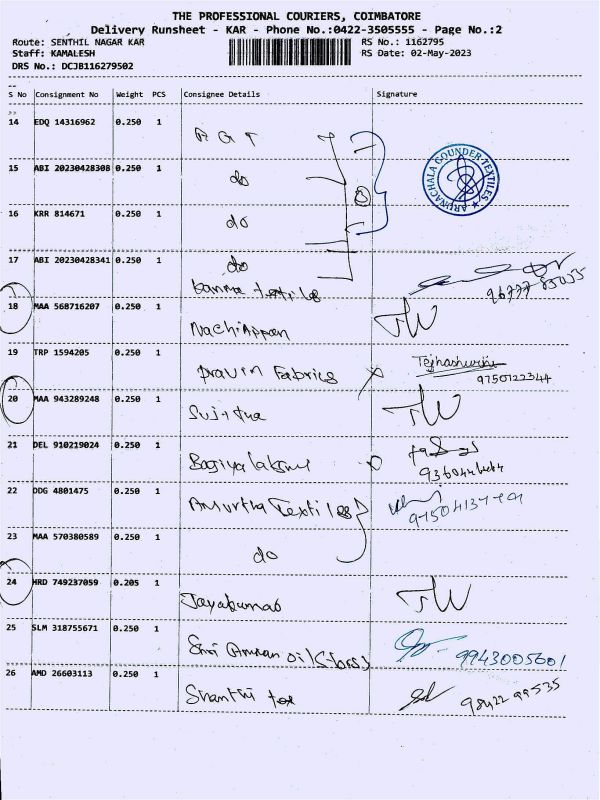 THE PROFESSIONAL COURIERS, COIMBATORE
Delivery Runsheet - KAR - Phone No.:0422-3505555 - Page No.:2
Route: SENTHIL NAGAR KAR RS No.: 1162795
Staff: KAMALESH RS Date: 02-May-2023
DRS No.: DCJB116279502
S No Consignment No Weight PCS Consignee Details Signature
14 EDQ 14316962 0.250 1
A G T
ARUNACHALA GOUNDER TEXTILES
15 ABI 20230428308 0.250 1
do
16 KRR 814671 0.250 1
do
17 ABI 20230428341 0.250 1
do
textiles
18 MAA 568716207 0.250 1
Nachiappan TW
19 TRP 1594205 0.250 1
Pravin Fabrics 9750122344
20 MAA 943289248 0.250 1
Sujitha TW
21 DEL 910219024 0.250 1
Bagiyalakshmi
22 DDG 4801475 0.250 1
Amurtha Textiles
23 MAA 570380589 0.250 1
do
24 HRD 749237059 0.205 1
Jayakumar TW
25 SLM 318755671 0.250 1
Sri Amman oil Stores 9943005601
26 AMD 26603113 0.250 1
Shanthi tex 9842299535